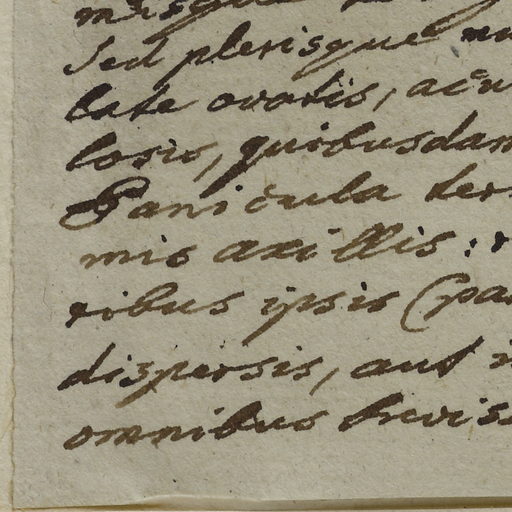 sed plerisque
late ovatis, acu
losis, quibusdam
Panicula ter
mis axillis :
ribus ipsis (pa
dispersis, aut
omnibus breviss